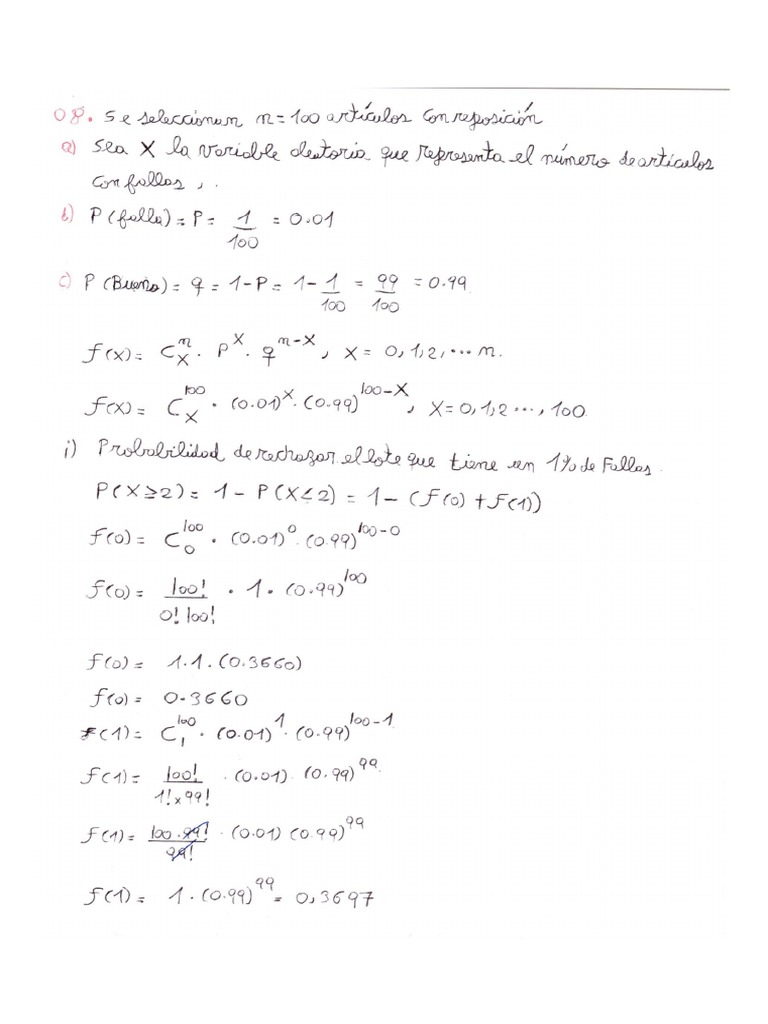 08. Se seleccionan n=100 artículos con reposición
a) Sea X la variable aleatoria que representa el número de artículos
con fallas,.
b) P(falla) = P = 1/100 = 0.01
c) P(Bueno) = q = 1-P = 1- 1/100 = 99/100 = 0.99
f(x) = C_X^n · P^X · q^{n-X}, X = 0,1,2,...n.
f(x) = C_X^100 · (0.01)^X · (0.99)^{100-X}, X=0,1,2...,100
i) Probabilidad de rechazar el lote que tiene un 1% de Fallas.
P(X≥2) = 1 - P(X<2) = 1 - (f(0) + f(1))
f(0) = C_0^100 · (0.01)^0 · (0.99)^{100-0}
f(0) = 100!/0!100! · 1 · (0.99)^100
f(0) = 1.1.(0.3660)
f(0) = 0.3660
f(1) = C_1^100 · (0.01)^1 · (0.99)^{100-1}
f(1) = 100!/1!x99! · (0.01) · (0.99)^99
f(1) = 100.99!/99! · (0.01) (0.99)^99
f(1) = 1.(0.99)^99 = 0,3697